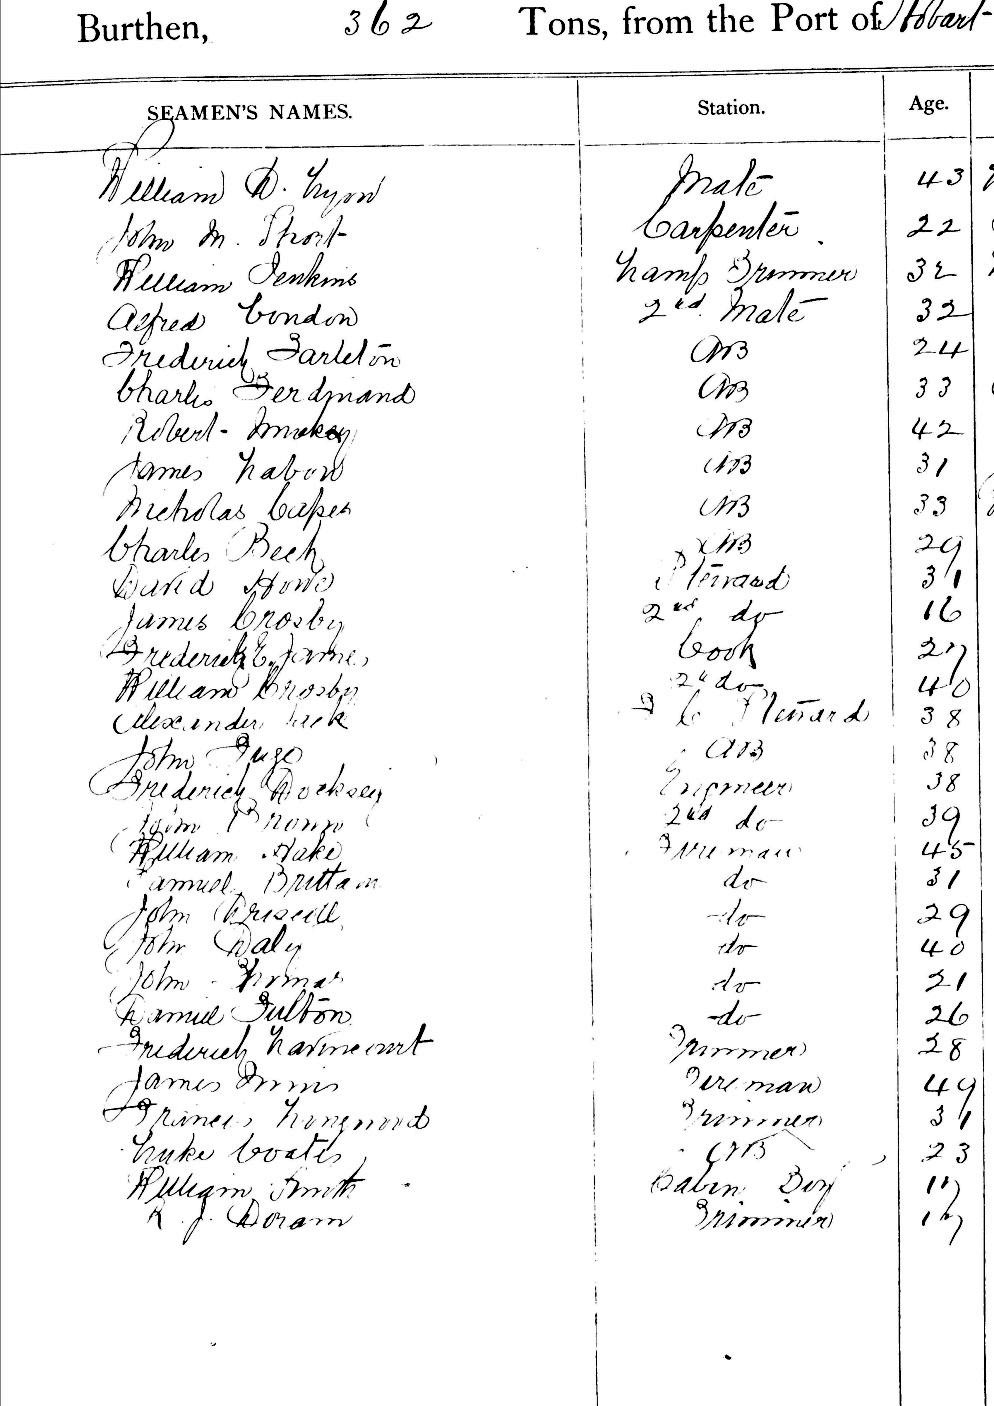 Burthen, 362 Tons, from the Port of Hobart
SEAMEN'S NAMES. Station. Age.
William D. Lyon Mate 43
John M. Short Carpenter 22
William Jenkins Lamp Trimmer 32
Alfred Condon 2nd Mate 32
Frederick Tarleton AB 24
Charles Ferdinand AB 33
Robert AB 42
James AB 31
Nicholas Capes AB 33
Charles Beck AB 29
David Howe Steward 31
James Crosby 2nd do 16
Frederick E. James Cook 27
William Crosby 2d do 40
Alexander F C Steward 38
John AB 38
Frederick Docksey Engineer 38
John 2nd do 39
William Hake Fireman 45
Samuel Brittain do 31
John Driscoll do 29
John Daly do 40
John Thomas do 21
Samuel Fulton do 26
Frederick Trimmer 28
James Innis Fireman 49
Francis Longmord Trimmer 31
Luke Coates AB 23
William Smith Cabin Boy 17
R. J. Doram Trimmer 17